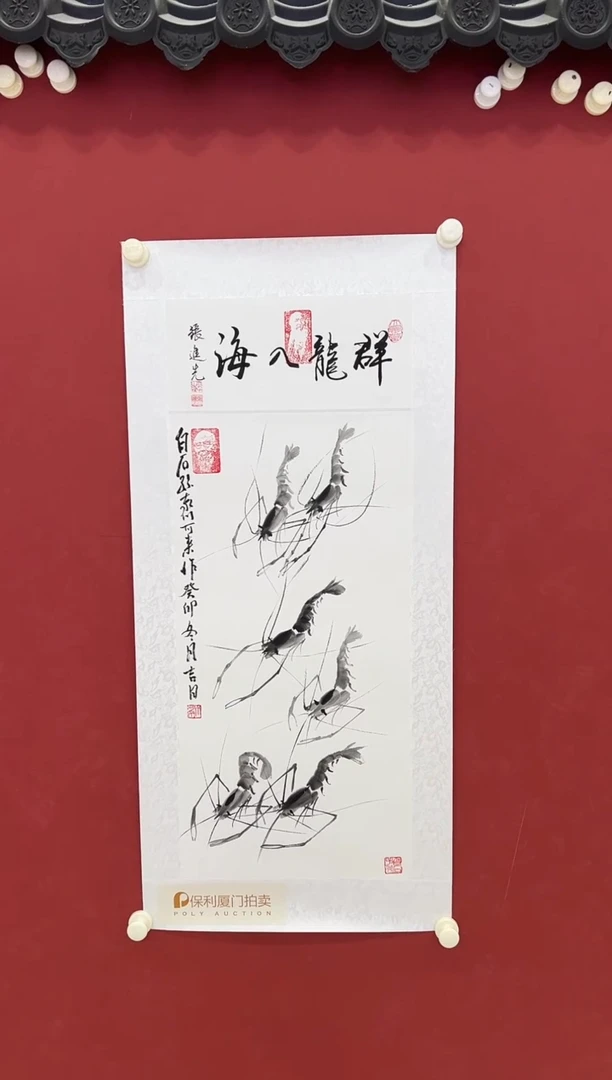 群龍入海
張進先
白石孫齊可來作癸卯冬月吉日
保利厦门拍卖
POLY AUCTION